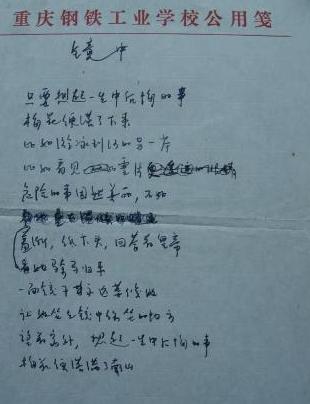 重庆钢铁工业学校公用笺
镜中
只要想起一生中后悔的事
梅花便落了下来
比如游泳到河的另一岸
比如看见
危险的事固然美丽，不如
羞惭，低下头，回答着皇帝
看她骑马归来
一面镜子永远等候她
让她坐在镜中常坐的地方
望着窗外，想起一生中后悔的事
梅花便落满了南山